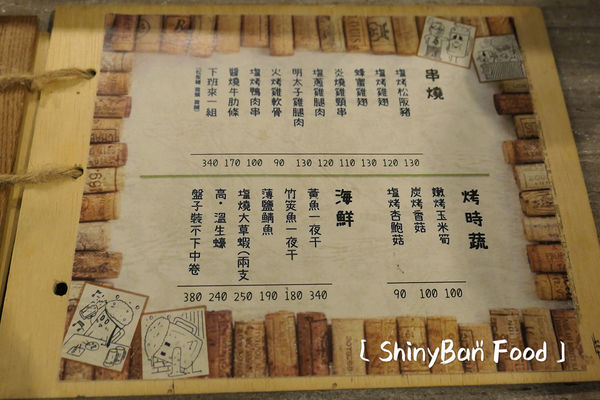 串燒
塩烤松阪豬
塩烤雞翅
蜂蜜雞翅
炎燒雞頸串
塩蔥雞腿肉
明太子雞腿肉
火烤雞軟骨
塩烤鴨肉串
醬燒牛肋條
下班來一組
340 170 100 90 130 120 110 130 120 130
烤時蔬
嫩烤玉米筍
炭烤香菇
塩烤杏鮑菇
90 100 100
海鮮
黃魚一夜干
竹筴魚一夜干
薄鹽鯖魚
塩燒大草蝦(兩支
高·溫生蠔
盤子裝不下中卷
380 240 250 190 180 340
[ ShinyBan Food ]